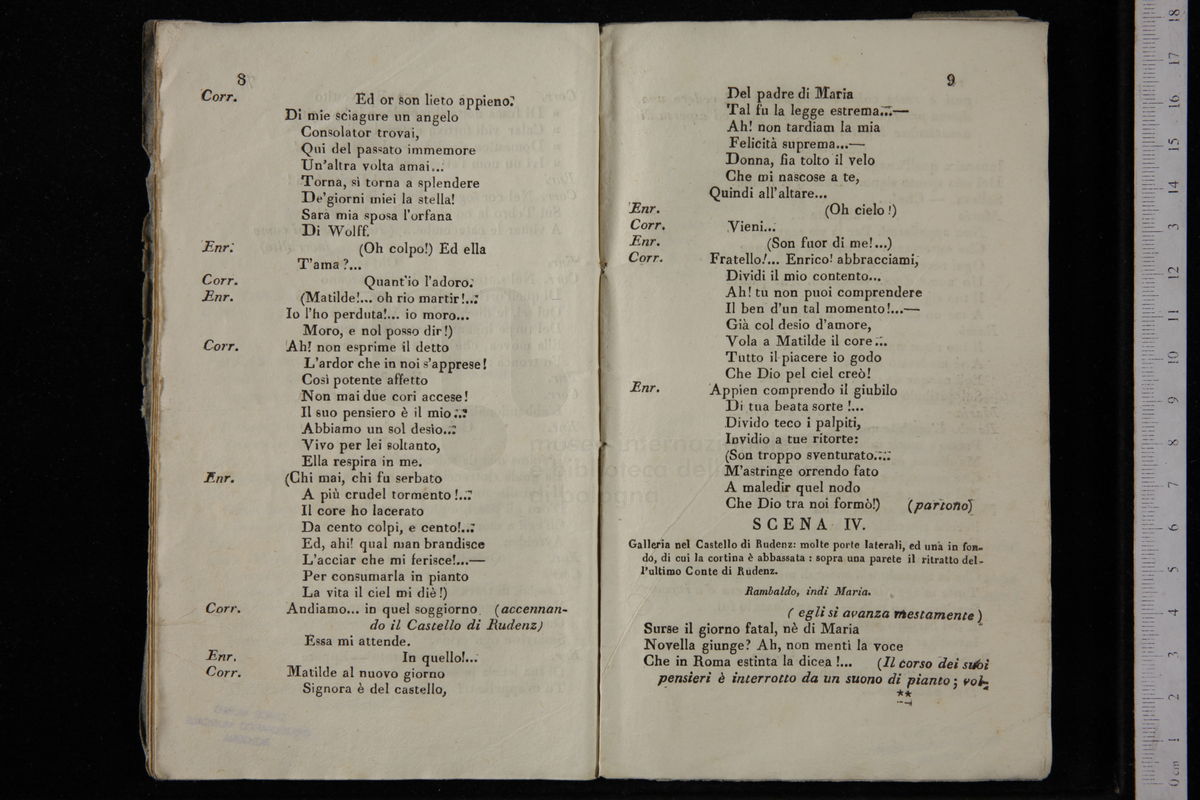 8
Corr. Ed or son lieto appieno.
Di mie sciagure un angelo
Consolator trovai,
Qui del passato immemore
Un'altra volta amai...
Torna, sì torna a splendere
De'giorni miei la stella!
Sarà mia sposa l'orfana
Di Wolff.
Enr. (Oh colpo!) Ed ella
T'ama?...
Corr. Quant'io l'adoro.
Enr. (Matilde!... oh rio martir!...
Io l'ho perduta!... io moro...
Moro, e nol posso dir!)
Corr. Ah! non esprime il detto
L'ardor che in noi s'apprese!
Così potente affetto
Non mai due cori accese!
Il suo pensiero è il mio...
Abbiamo un sol desìo...
Vivo per lei soltanto,
Ella respira in me.
Enr. (Chi mai, chi fu serbato
A più crudel tormento!...
Il core ho lacerato
Da cento colpi, e cento!...
Ed, ahi! qual man brandisce
L'acciar che mi ferisce!...—
Per consumarla in pianto
La vita il ciel mi diè!)
Corr. Andiamo... in quel soggiorno (accennan-
do il Castello di Rudenz)
Essa mi attende.
Enr. In quello!...
Corr. Matilde al nuovo giorno
Signora è del castello,
9
Del padre di Maria
Tal fu la legge estrema...—
Ah! non tardiam la mia
Felicità suprema...—
Donna, fia tolto il velo
Che mi nascose a te,
Quindi all'altare...
Enr. (Oh cielo!)
Corr. Vieni...
Enr. (Son fuor di me!...)
Corr. Fratello!... Enrico! abbracciami,
Dividi il mio contento...
Ah! tu non puoi comprendere
Il ben d'un tal momento!...—
Già col desio d'amore,
Vola a Matilde il core...
Tutto il piacere io godo
Che Dio pel ciel creò!
Enr. Appien comprendo il giubilo
Di tua beata sorte!...
Divido teco i palpiti,
Invidio a tue ritorte:
(Son troppo sventurato...
M'astringe orrendo fato
A maledir quel nodo
Che Dio tra noi formò!) (partono)
SCENA IV.
Galleria nel Castello di Rudenz: molte porte laterali, ed una in fon-
do, di cui la cortina è abbassata : sopra una parete il ritratto del-
l'ultimo Conte di Rudenz.
Rambaldo, indi Maria.
(egli si avanza mestamente)
Surse il giorno fatal, nè di Maria
Novella giunge? Ah, non mentì la voce
Che in Roma estinta la dicea!... (Il corso dei suoi
pensieri è interrotto da un suono di pianto; vol-
**